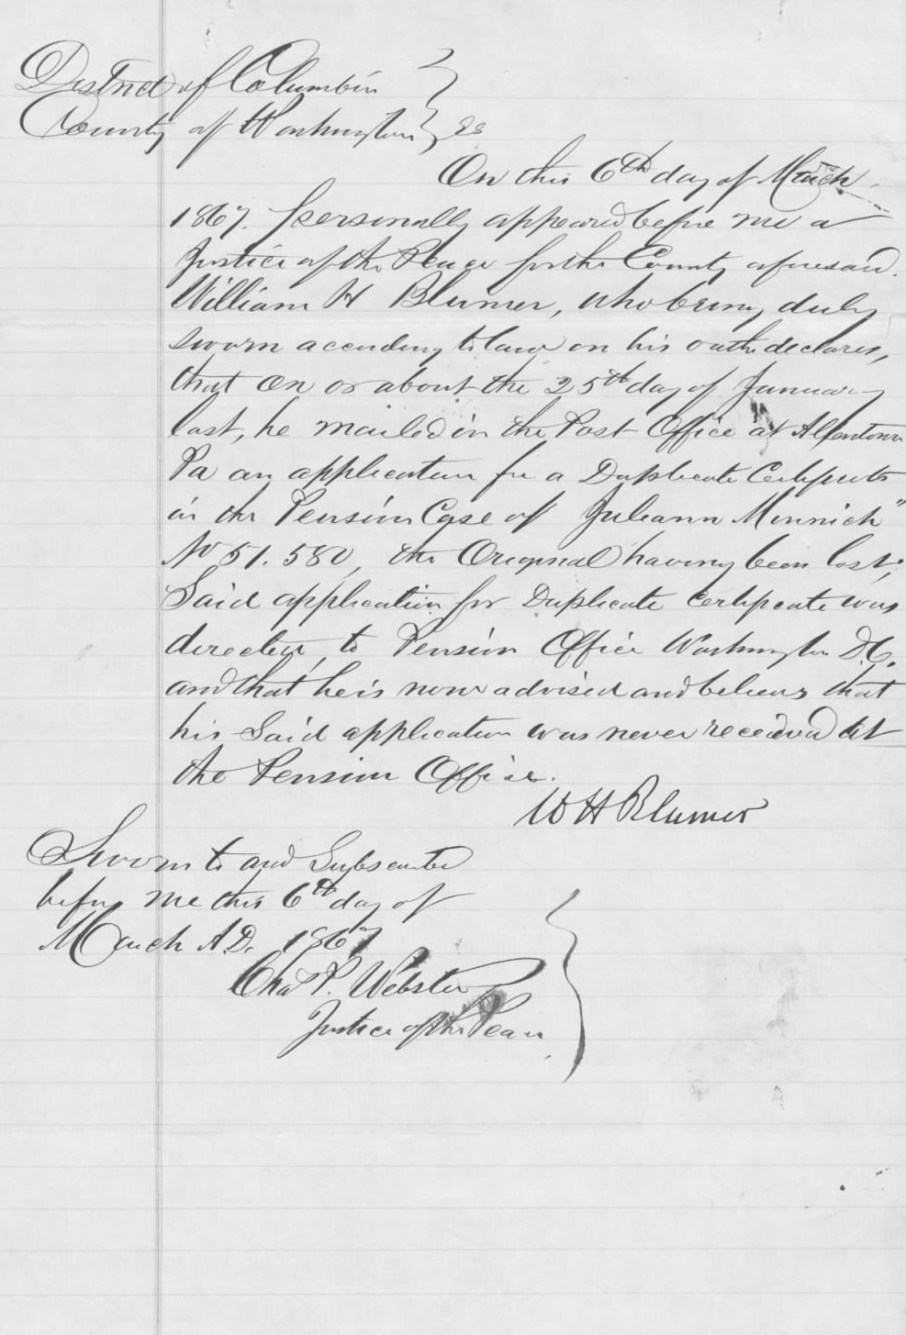 District of Columbia }
County of Washington } SS
On this 6th day of March
1867. personally appeared before me a
Justice of the Peace for the County aforesaid.
William H Blumer, who being duly
sworn according to law on his oath declares,
that on or about the 25th day of January
last, he mailed in the Post Office at Allentown
Pa an application for a Duplicate Certificate
in the Pension Case of "Juliann Minnich"
No 51.580, the Original having been lost;
Said application for Duplicate Certificate was
directed to Pension Office Washington D.C.
and that he is now advised and believes that
his said application was never received at
the Pension Office.
W H Blumer
Sworn to and Subscribed
before me this 6th day of
March A.D. 1867
Chas P. Webster
Justice of the Peace